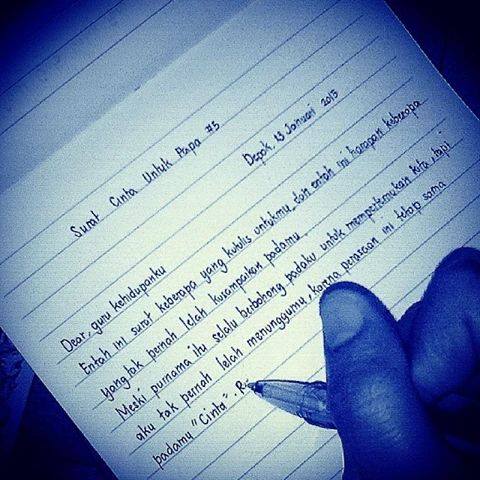 Surat Cinta Untuk Papa #3
Depok, 13 Januari 2015
Dear, guru kehidupanku
Entah ini surat keberapa yang kutulis untukmu, dan entah ini harapan keberapa
yang tak pernah lelah kusampaikan padamu.
Meski purnama itu selalu berbohong padaku untuk mempertemukan kita, tapi
aku tak pernah lelah menunggumu, karna perasaan ini tetap sama
padamu "Cinta". R